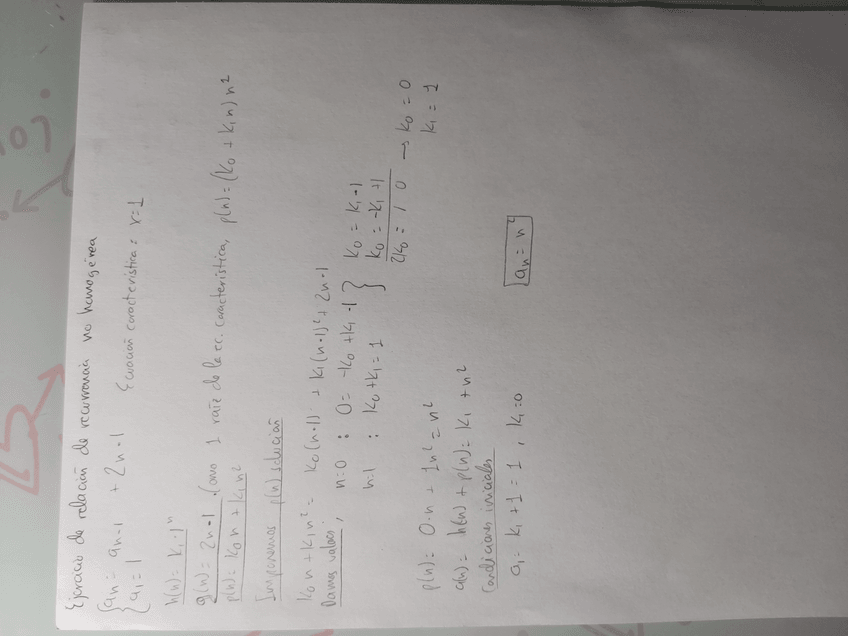 Ejercicio de relación de recurrencia no homogérea
{ an = an-1 + 2n-1 Ecuación característica: r=1
{ a1 = 1
h(n) = K1·1^n
g(n) = 2n-1. Como 1 raíz de la ec. característica, p(n) = (K0 + K1n)n^2
p(n) = K0n + K1n^2
Imponemos p(n) solución
K0n + K1n^2 = K0(n-1) + K1(n-1)^2 + 2n-1
Damos valores, n=0 : 0 = -K0 + K1 - 1 } K0 = K1-1
n=1 : K0 + K1 = 1 } K0 = -K1+1
2K0 = / 0 → K0 = 0
K1 = 1
p(n) = 0·n + 1n^2 = n^2
a(n) = h(n) + p(n) = K1 + n^2
Condiciones iniciales
a1 = K1 + 1 = 1, K1 = 0 an = n^2